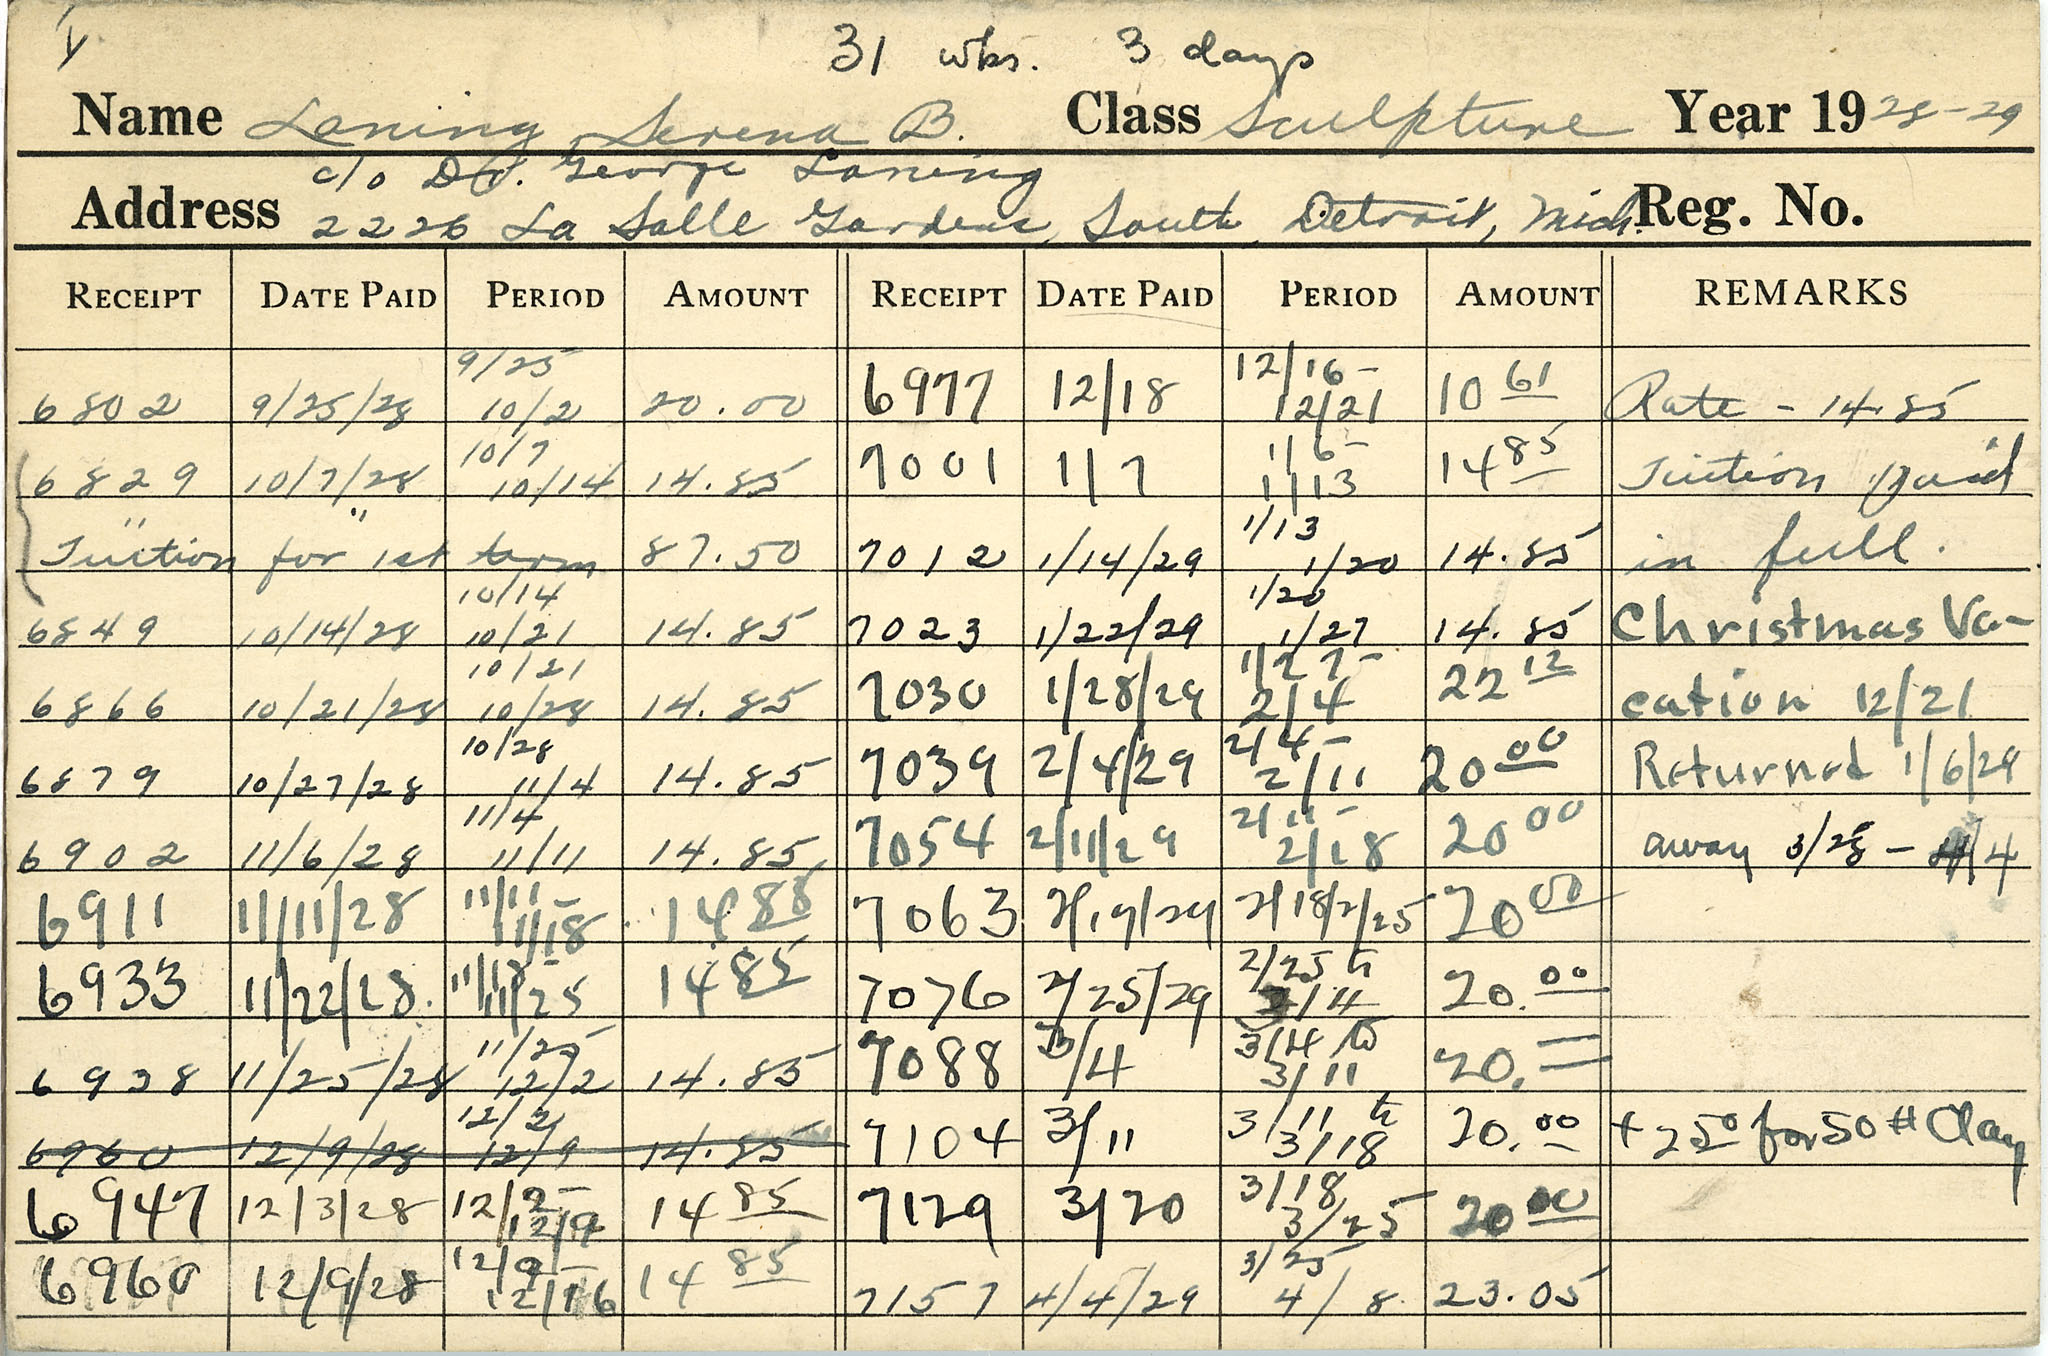 31 wks. 3 days
Name Laning, Serena B. Class Sculpture Year 1928-29
c/o Dr. George Laning
Address 2226 La Salle Gardens, South, Detroit, Mich. Reg. No.
RECEIPT DATE PAID PERIOD AMOUNT RECEIPT DATE PAID PERIOD AMOUNT REMARKS
6802 9/25/28 9/25 10/2 20.00 6977 12/18 12/16- 12/21 10 61 Rate - 14.85
6829 10/7/28 10/7 10/14 14.85 7001 1/7 1/6- 1/13 14 85 Tuition paid
" "
Tuition for 1st term 87.50 7012 1/14/29 1/13 1/20 14.85 in full.
6849 10/14/28 10/14 10/21 14.85 7023 1/22/29 1/20 1/27 14.85 Christmas Va-
6866 10/21/28 10/21 10/28 14.85 7030 1/28/29 1/27- 2/4 22 12 cation 12/21
6879 10/27/28 10/28 11/4 14.85 7039 2/4/29 2/4- 2/11 20 00 Returned 1/6/29
6902 11/6/28 11/4 11/11 14.85 7054 2/11/29 2/11- 2/18 20 00 away 3/28 - 4/4
6911 11/11/28 11/11- 11/18 14 7063 2/19/29 2/18/2/25 20 00
6933 11/22/28. 11/18- 11/25 14 85 7076 2/25/29 2/25 to 3/4 20.00
6938 11/25/28 11/25 12/2 14.85 7088 3/4 3/4 to 3/11 20.=
6960 12/9/28 12/2 12/9 14.85 7104 3/11 3/11 to 3/18 20.00 + 2 50 for 50 # Clay
6947 12/3/28 12/2- 12/9 14 85 7129 3/20 3/18 3/25 20 00
6960 12/9/28 12/9- 12/16 14 85 7157 4/4/29 3/25 4/8 23.05